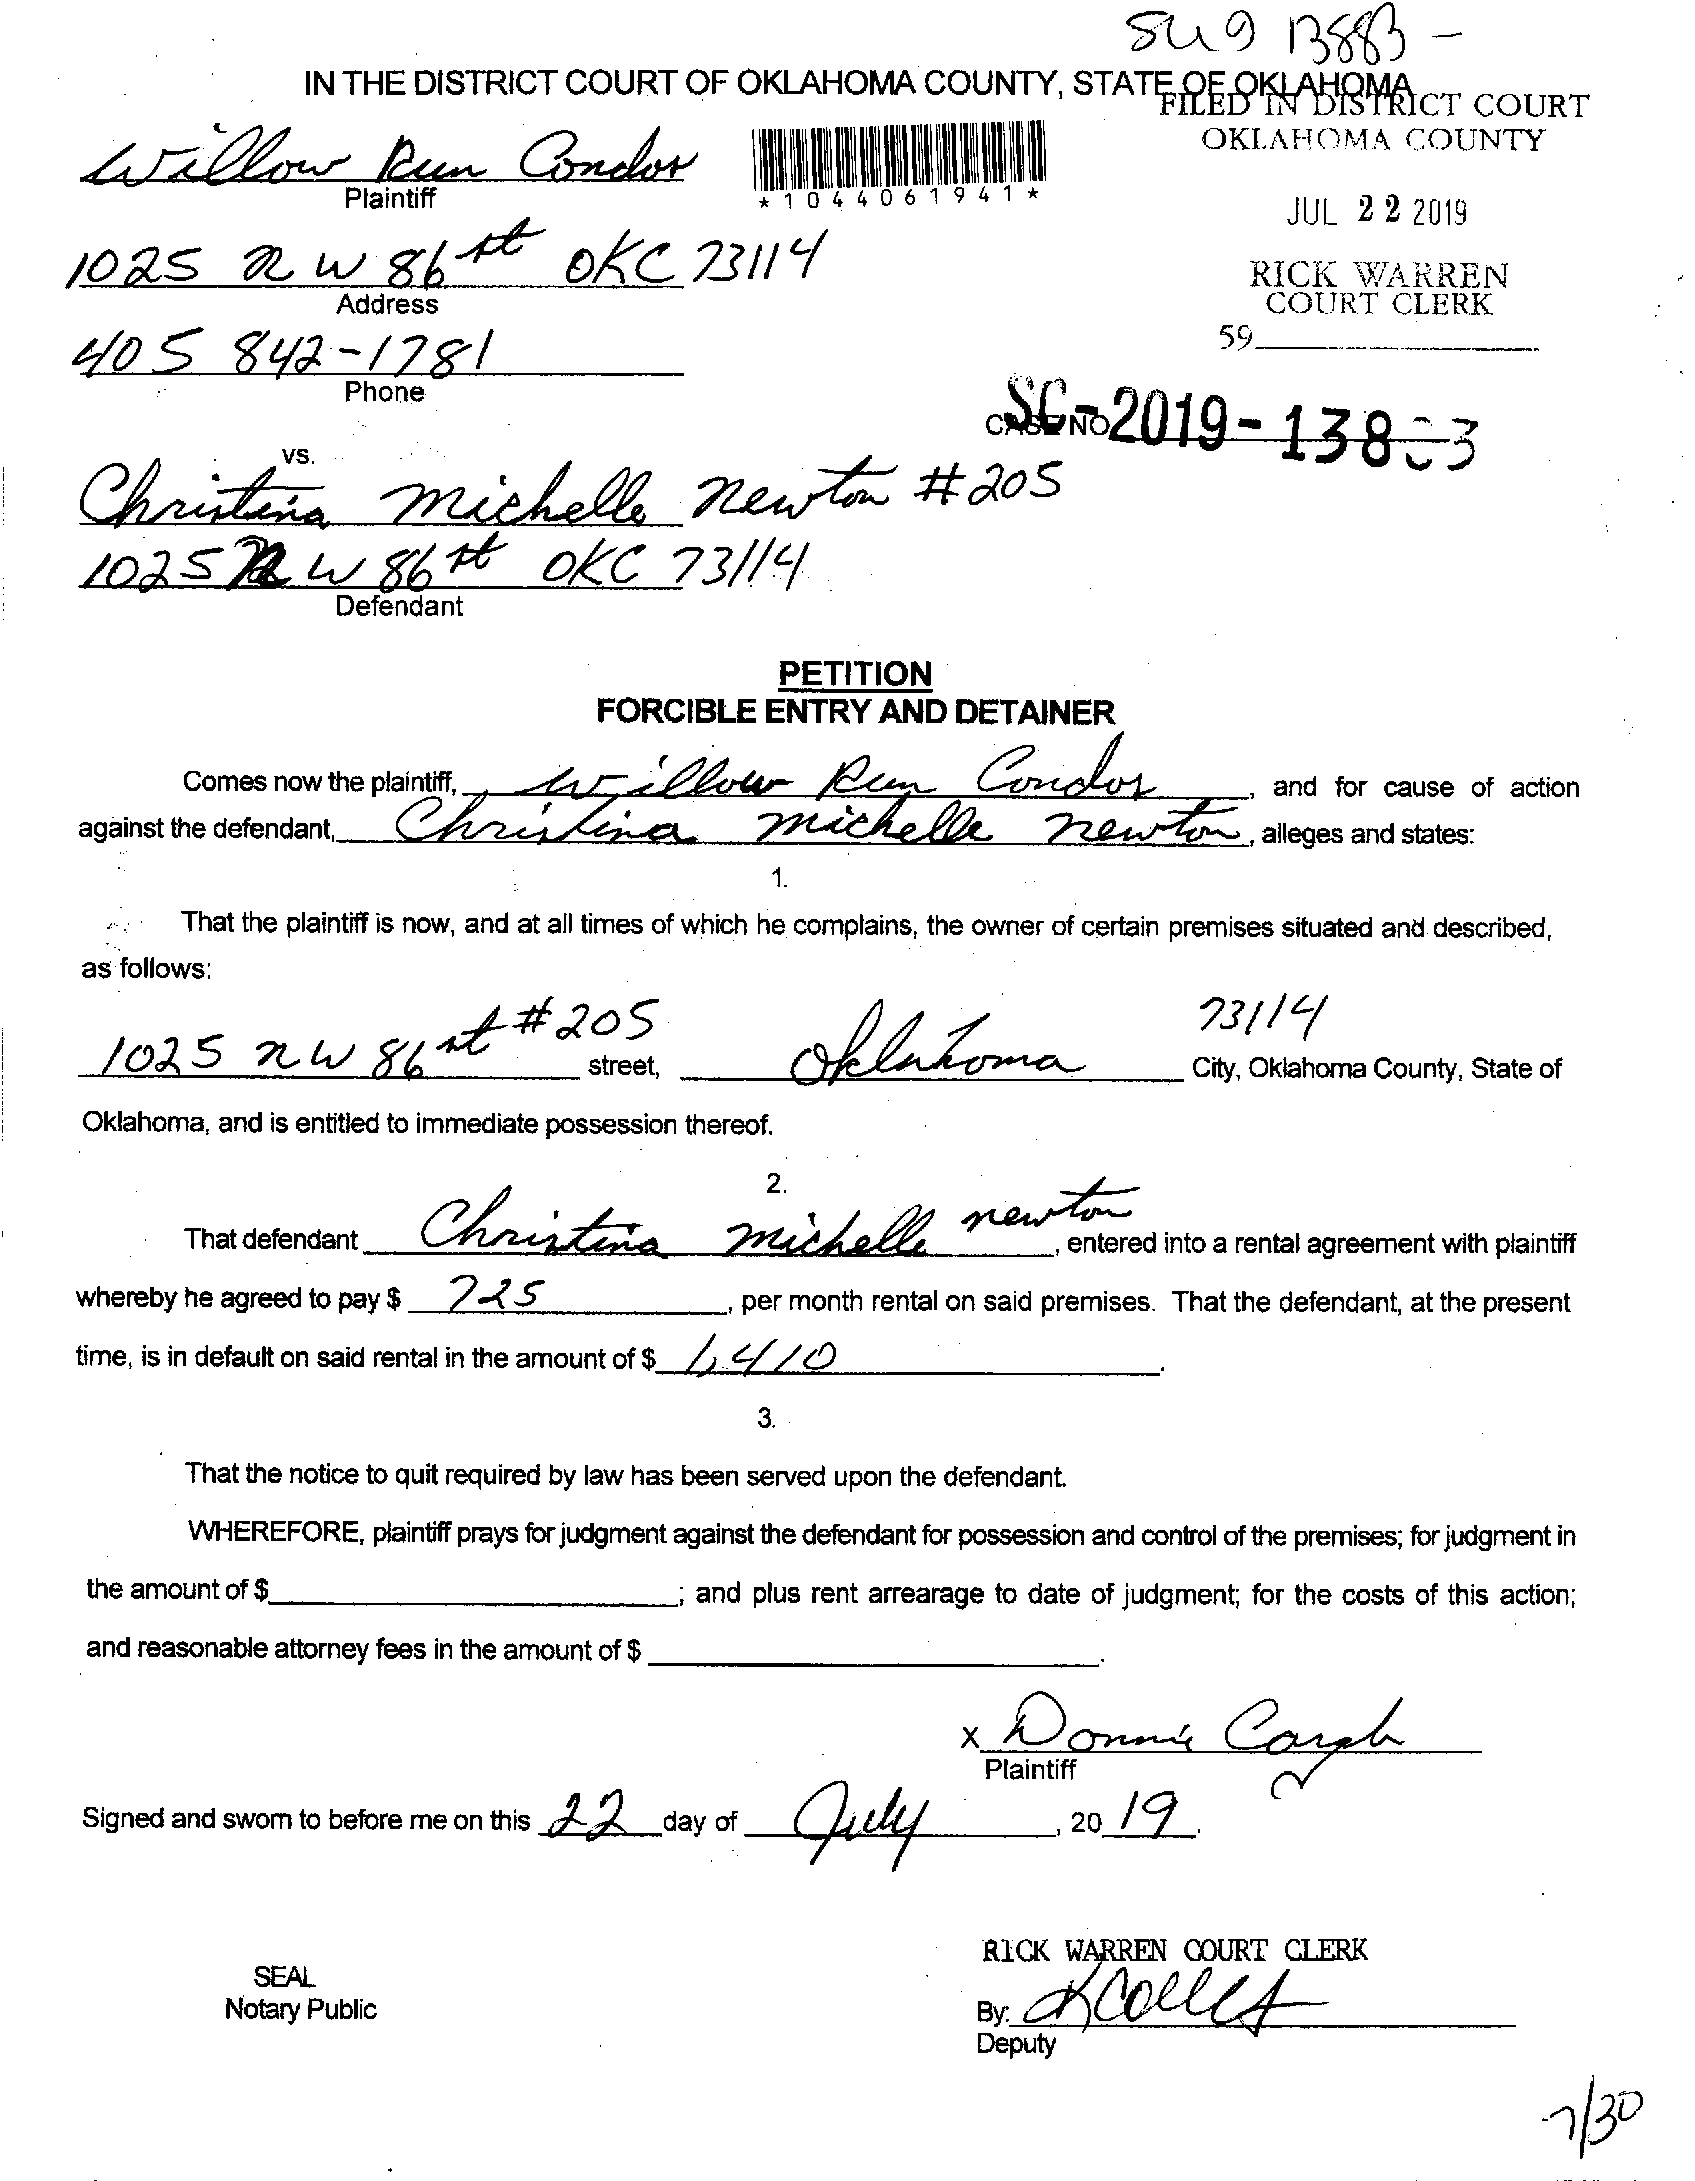 13883 -
IN THE DISTRICT COURT OF OKLAHOMA COUNTY, STATE OF OKLAHOMA
FILED IN DISTRICT COURT
OKLAHOMA COUNTY
Willow Run Condos
Plaintiff
*1044061941*
JUL 22 2019
1025 NW 86 st OKC 73114
Address
RICK WARREN
COURT CLERK
59
405 842-1781
Phone
CASE NO
SC-2019-13883
vs.
Christina Michelle Newton #205
1025 NW 86 st OKC 73114
Defendant
PETITION
FORCIBLE ENTRY AND DETAINER
Comes now the plaintiff, Willow Run Condos, and for cause of action
against the defendant, Christina Michelle Newton, alleges and states:
1.
That the plaintiff is now, and at all times of which he complains, the owner of certain premises situated and described,
as follows:
1025 NW 86 st #205 street, Oklahoma 73114 City, Oklahoma County, State of
Oklahoma, and is entitled to immediate possession thereof.
2.
That defendant Christina Michelle Newton, entered into a rental agreement with plaintiff
whereby he agreed to pay $ 725, per month rental on said premises. That the defendant, at the present
time, is in default on said rental in the amount of $ 1,410.
3.
That the notice to quit required by law has been served upon the defendant.
WHEREFORE, plaintiff prays for judgment against the defendant for possession and control of the premises; for judgment in
the amount of $; and plus rent arrearage to date of judgment; for the costs of this action;
and reasonable attorney fees in the amount of $.
x Donnie
Plaintiff
Signed and sworn to before me on this 22 day of July, 20 19.
RICK WARREN COURT CLERK
SEAL
Notary Public
By:
Deputy
7/30